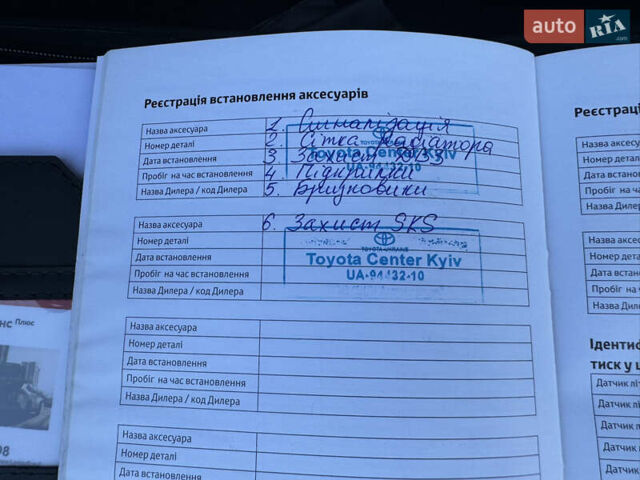 auto RIA .com
Реєстрація встановлення аксесуарів
Назва аксесуара 1. Сигналізація
Номер деталі 2. Сітка радіатора
Дата встановлення 3. Захист
Пробіг на час встановлення 4. Підкрилки
Назва Дилера / код Дилера 5. Бризковики
TOYOTA-UKRAINE
Toyota Center Kyiv
UA-94432-10
Назва аксесуара 6. Захист SKS
Номер деталі
Дата встановлення
Пробіг на час встановлення
Назва Дилера / код Дилера
TOYOTA-UKRAINE
Toyota Center Kyiv
UA-94432-10
Назва аксесуара
Номер деталі
Дата встановлення
Пробіг на час встановлення
Назва Дилера / код Дилера
Назва аксесуара
Номер деталі
Дата встановлення
нс Плюс
98
Реєстраці
Назва аксесуа
Номер деталі
Дата встановле
Пробіг на час
Назва Дилера
Назва аксесуа
Номер дета
Дата встанов
Пробіг на ча
Назва Дилер
Ідентиф
тиск у ш
Датчик лі
Датчик лі
Датчик л
Датчик л
Датчик